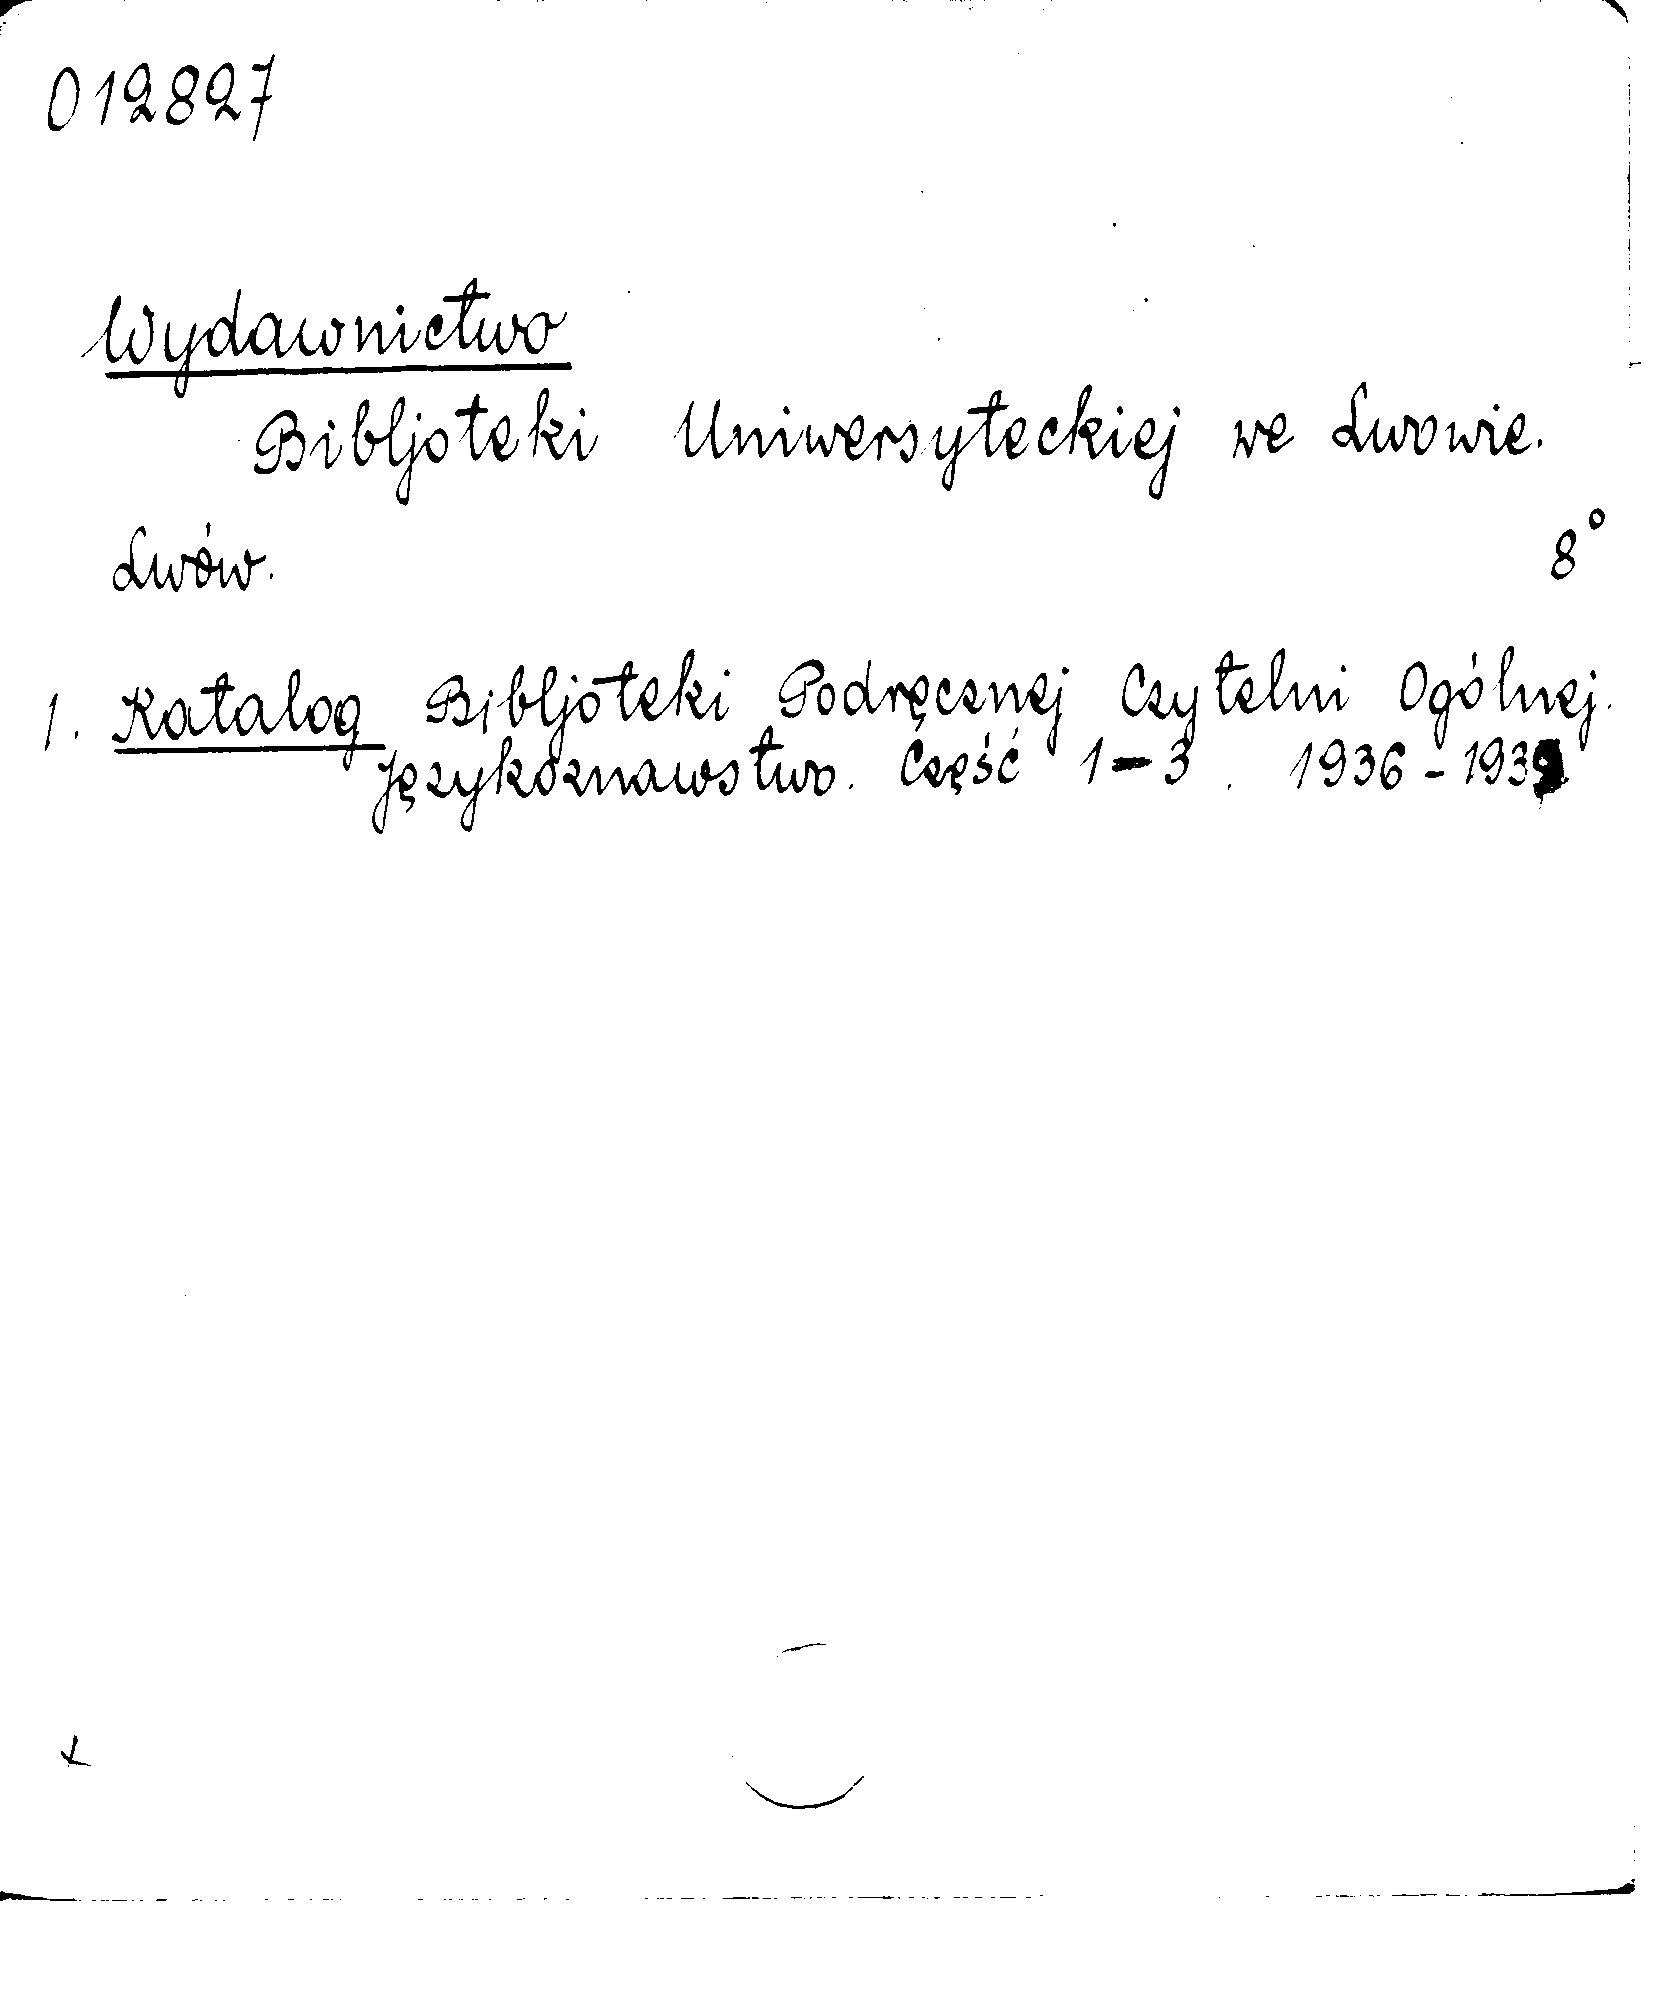 012827
Wydawnictwo
Bibljoteki Uniwersyteckiej we Lwowie.
Lwów. 8°
1. Katalog Bibljoteki Podręcznej Czytelni Ogólnej.
Językoznawstwo. Część 1-3. 1936-1939